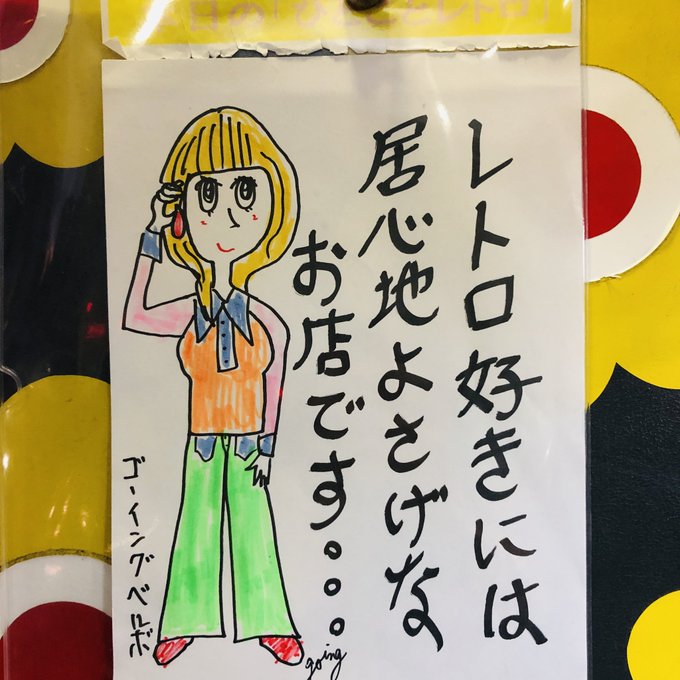 レトロ好きには
居心地よさげな
お店です...
ゴーイングベルボ
going